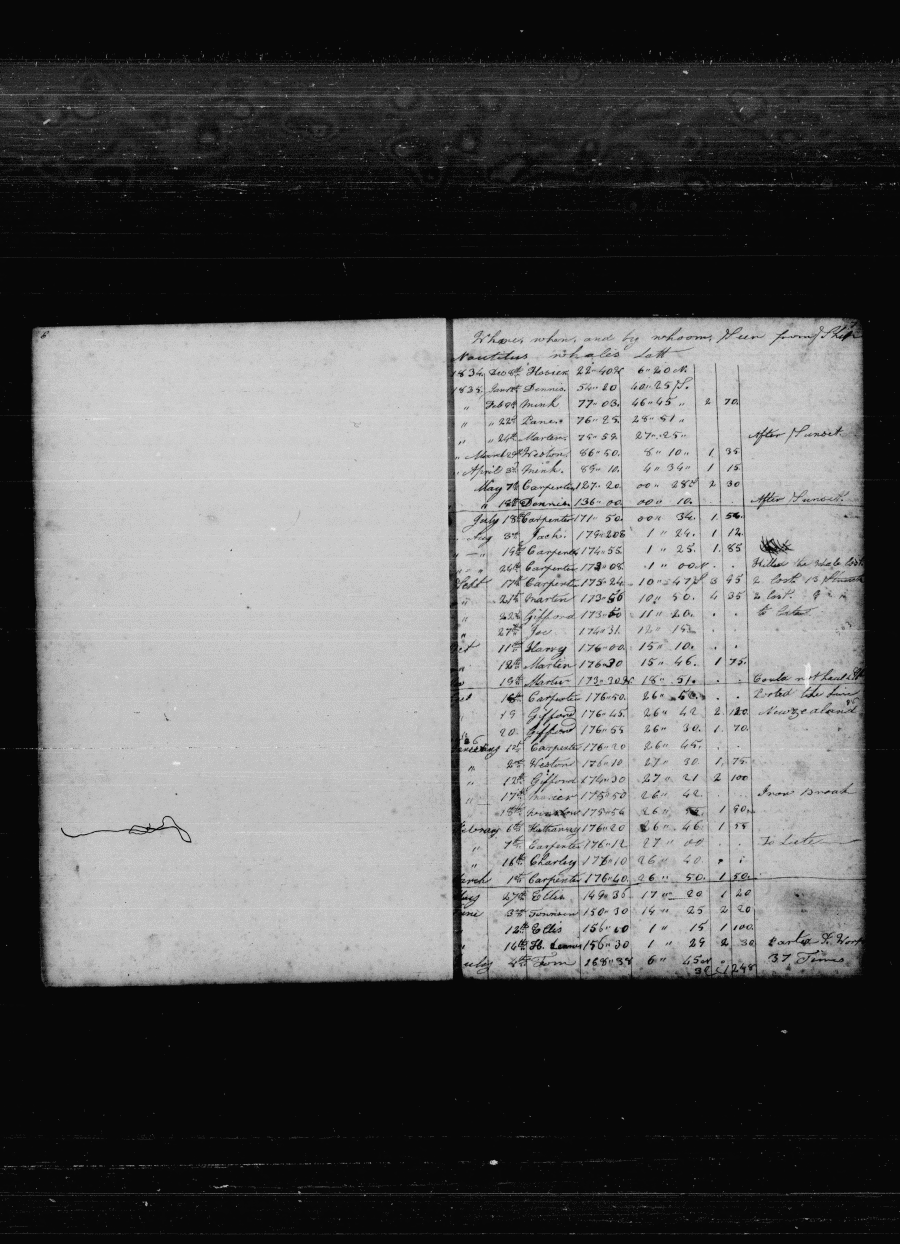 6
Whare, when, and by whoom, Seen from Ship
Nautilus whales Latt
1834, Dec 8th Hosier 22"40 6"20 N.
1835. Jan Dennis. 54"20 40"25 S.
" Feb 8th Mink 77"03. 46"45 " 2 70.
" " 22d 76"25. 28"51 "
" " 24th Marten. 75"59. 27"25 " After Sunset.
" March Weston. 86"50. 8"10 " 1 35
" April 3d Mink. 89"10. 4"34 " 1 15
May 7th Carpenter 127"20 00"28 S 2 30
" 18th Dennis 136"00 00"10. After Sunset.
July 18th Carpenter 171"50. 00"34. 1 56
" Aug 3d Jack. 179"20 1"24. 1 12.
" " 19th Carpenter 174"55 1"25. 1 85
" " 24th Carpenter 173"08. 1"00 N . . Killed the whale lost
Sept 17th Carpenter 175"24 10"47 S 3 95 2 lost 13
" 21st Martin 173"50 10"50. 4 35 2 lost 9 "
" 22d Gifford 173"50 11"20. . . to late
" 27th Joe 174"31. 12"15 . .
Oct 11th Harry 176"00 15"10. . .
" 12th Martin 176"30 15"46. 1 75.
19th Martin 173"30 18"51. . . Could not heal
18th Carpenter 176"50. 26"50. . . the Line
" 19 Gifford 176"45. 26"42 2 120. Newzealand
20. Gifford 176"55 26"30. 1 70.
1st Carpenter 176"20 26"45. . .
" 2d Weston 176"10 27"30. 1 75.
" 12th Gifford 174"30 27"21 2 100
" 17th 175"50 26"42. Iron Broak
175"56 26" 1 90
February 6th Hathaway 176"20 26"46. 1 55
" 7th Carpenter 176"12 27"00 . To Late
" 16th Charley 176"10 26"40. . .
March 1st Carpenter 176"40. 26"50. 1 50.
27th Ellis 149"35 17"20 1 20
June 3d 150"30 14"25 2 20
12th Ellis 156"10 1"15 1 100.
" 14th H. 156"30 1"29 2 30
July 4th Tom 168"38 6"45 N " 37 Times
1248